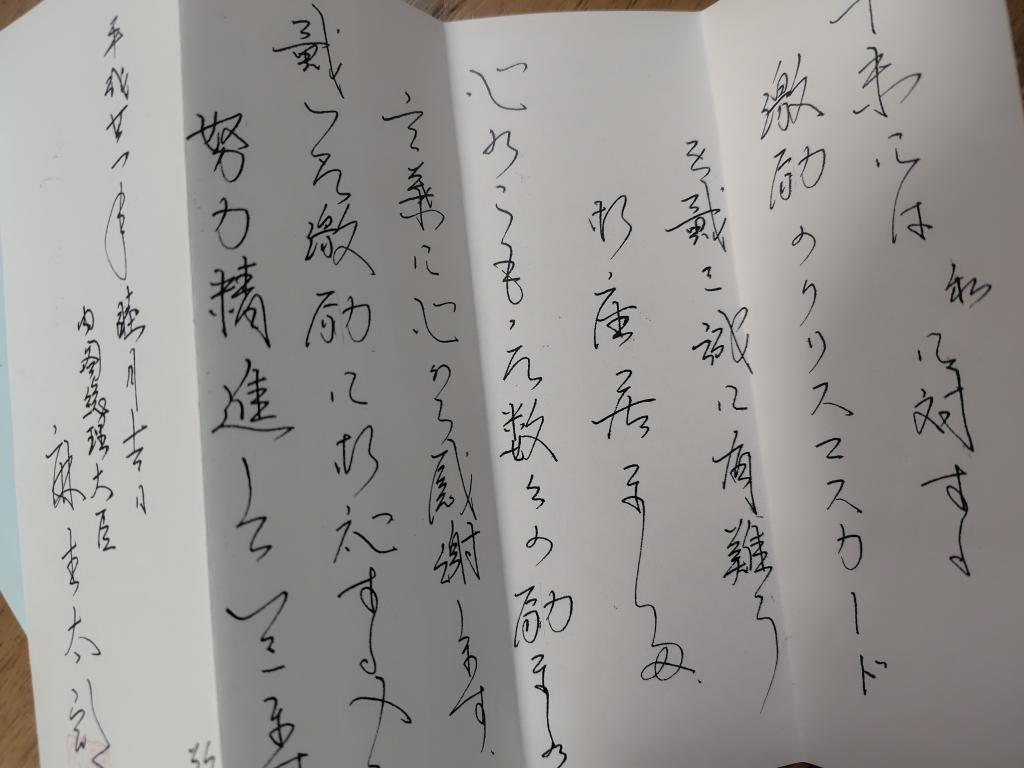 年末には 私に対する
激励のクリスマスカード
を戴き誠に有難う
御座居ました。
心のこもった数々の励ましの
言葉に心から感謝します。
戴いた激励にお礼する
努力精進していきます
平成廿一年睦月吉日
内閣総理大臣
麻生太郎